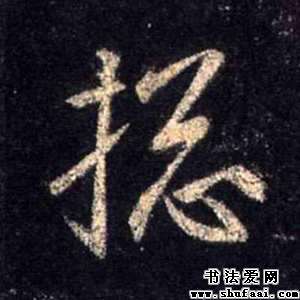 捴
书法爱网
www.shufaai.com